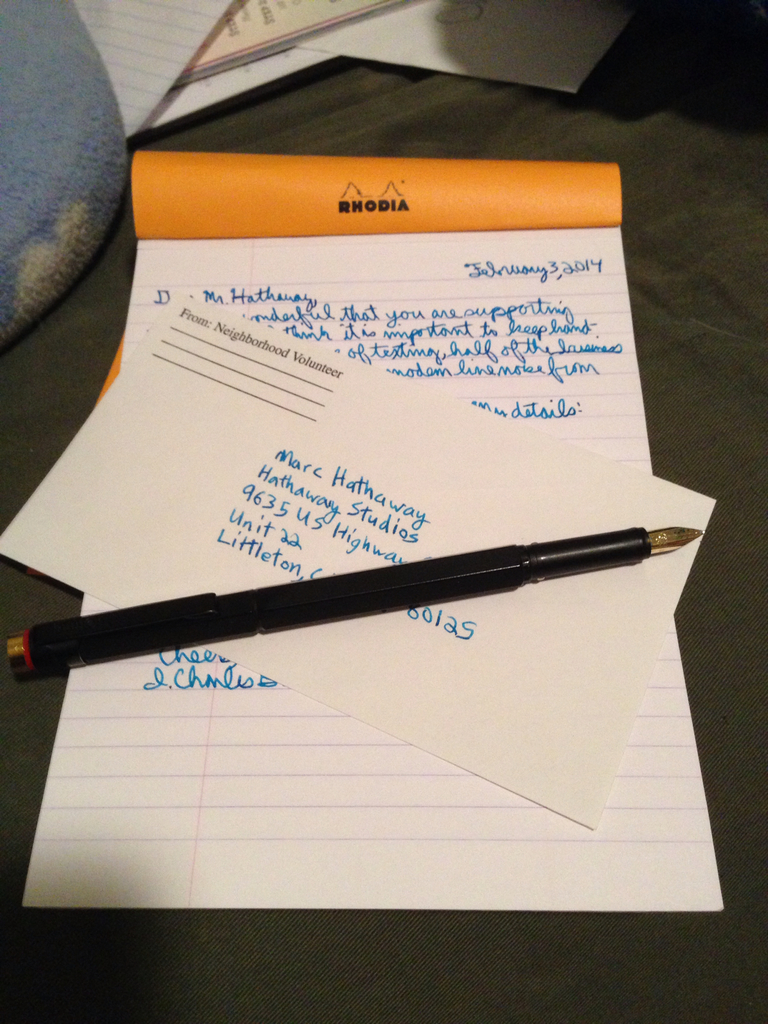 RHODIA
February 3, 2014
Mr. Hathaway,
that you are supporting
think it is important to keep hand-
of testing, half of the business
modem line noise from
details:
From: Neighborhood Volunteer
Marc Hathaway
Hathaway Studios
9635 US Highway
Unit 22
Littleton, C
80125
Cheers,
J. Charles